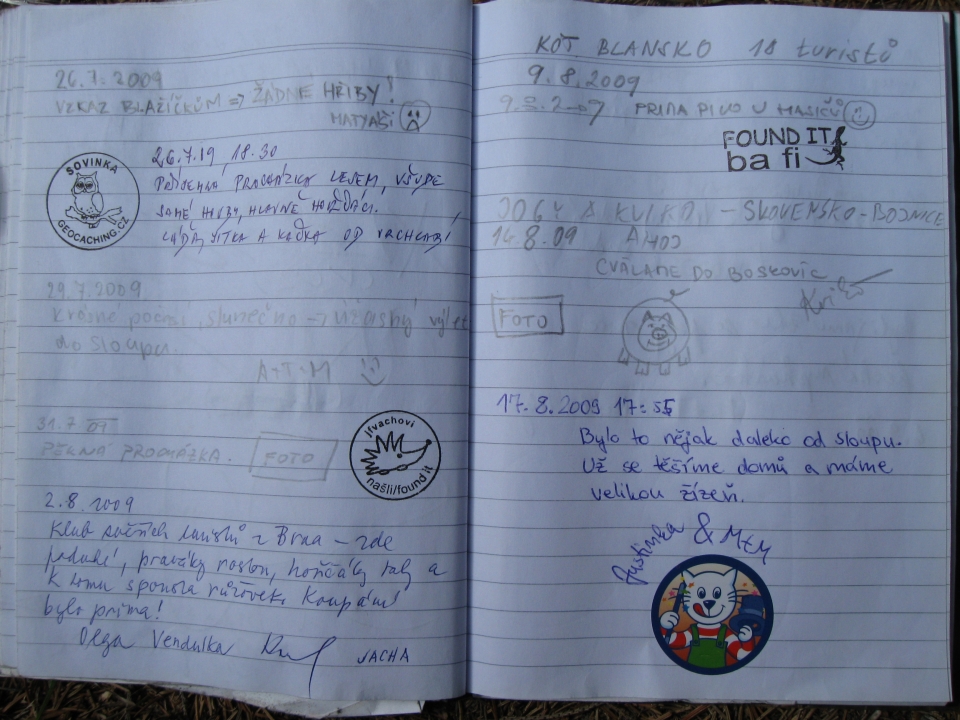 26.7.2009
VZKAZ BLAŽÍČKŮM => ŽÁDNÉ HŘIBY!
MATYÁŠ
SOVINKA
GEOCACHING.CZ
26.7.19, 18.30
PROCHÁZKA LESEM, VŠUDE
SAMÉ HŘIBY, HLAVNĚ HOŘČÁCI.
JITKA A KAČKA OD
29.7.2009
Krásné počasí, slunečno → úžasný výlet
do Sloupu.
A+T+M
31.7.09
PĚKNÁ PROCHÁZKA.
FOTO
jirvachovi
našli/found it
2.8.2009
Klub turistů z Brna – zde
praváky rostou, hořčáky taky a
k tomu spousta růžovek. Koupání
bylo príma!
Olga Vendulka
JACHA
KČT BLANSKO 18 turistů
9.8.2009
9.8.2009 PRIMA PIVO U HASIČŮ
FOUND IT
ba fi
JOGY & KULKA – SLOVENSKO-BOJNICE
14.8.09 AHOJ
CVÁLÁME DO BOSKOVIC
FOTO
17.8.2009 17:55
Bylo to nějak daleko od sloupu.
Už se těšíme domů a máme
velikou žízeň.
Justinka & M+M